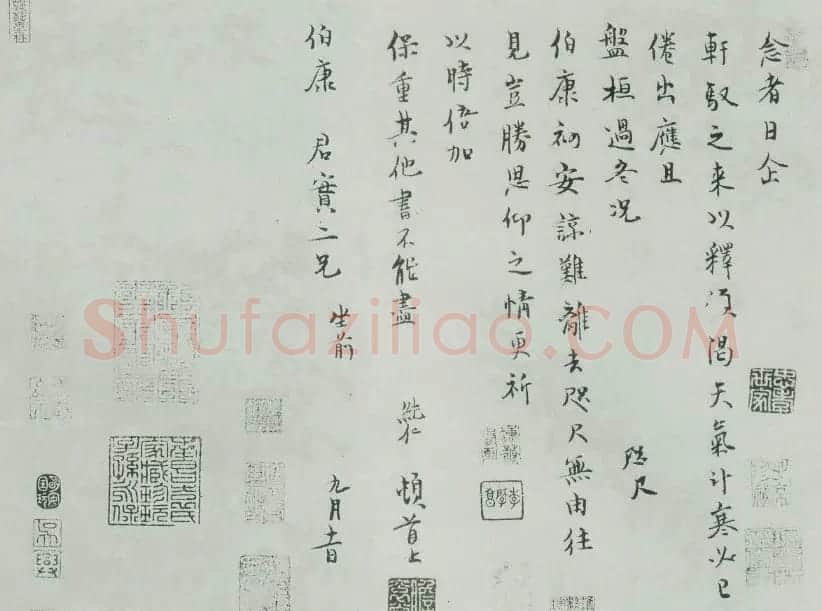 念者日企
軒馭之来以釋傾渴天氣计寒必已
倦出應且
盤桓過冬况
伯康初安諒難離去咫尺無由往
咫尺
見豈勝思仰之情更祈
以時倍加
保重其他書不能盡 純仁 頓首上
伯康 君實二兄 坐前 九月十一日
Shufaziliao.COM